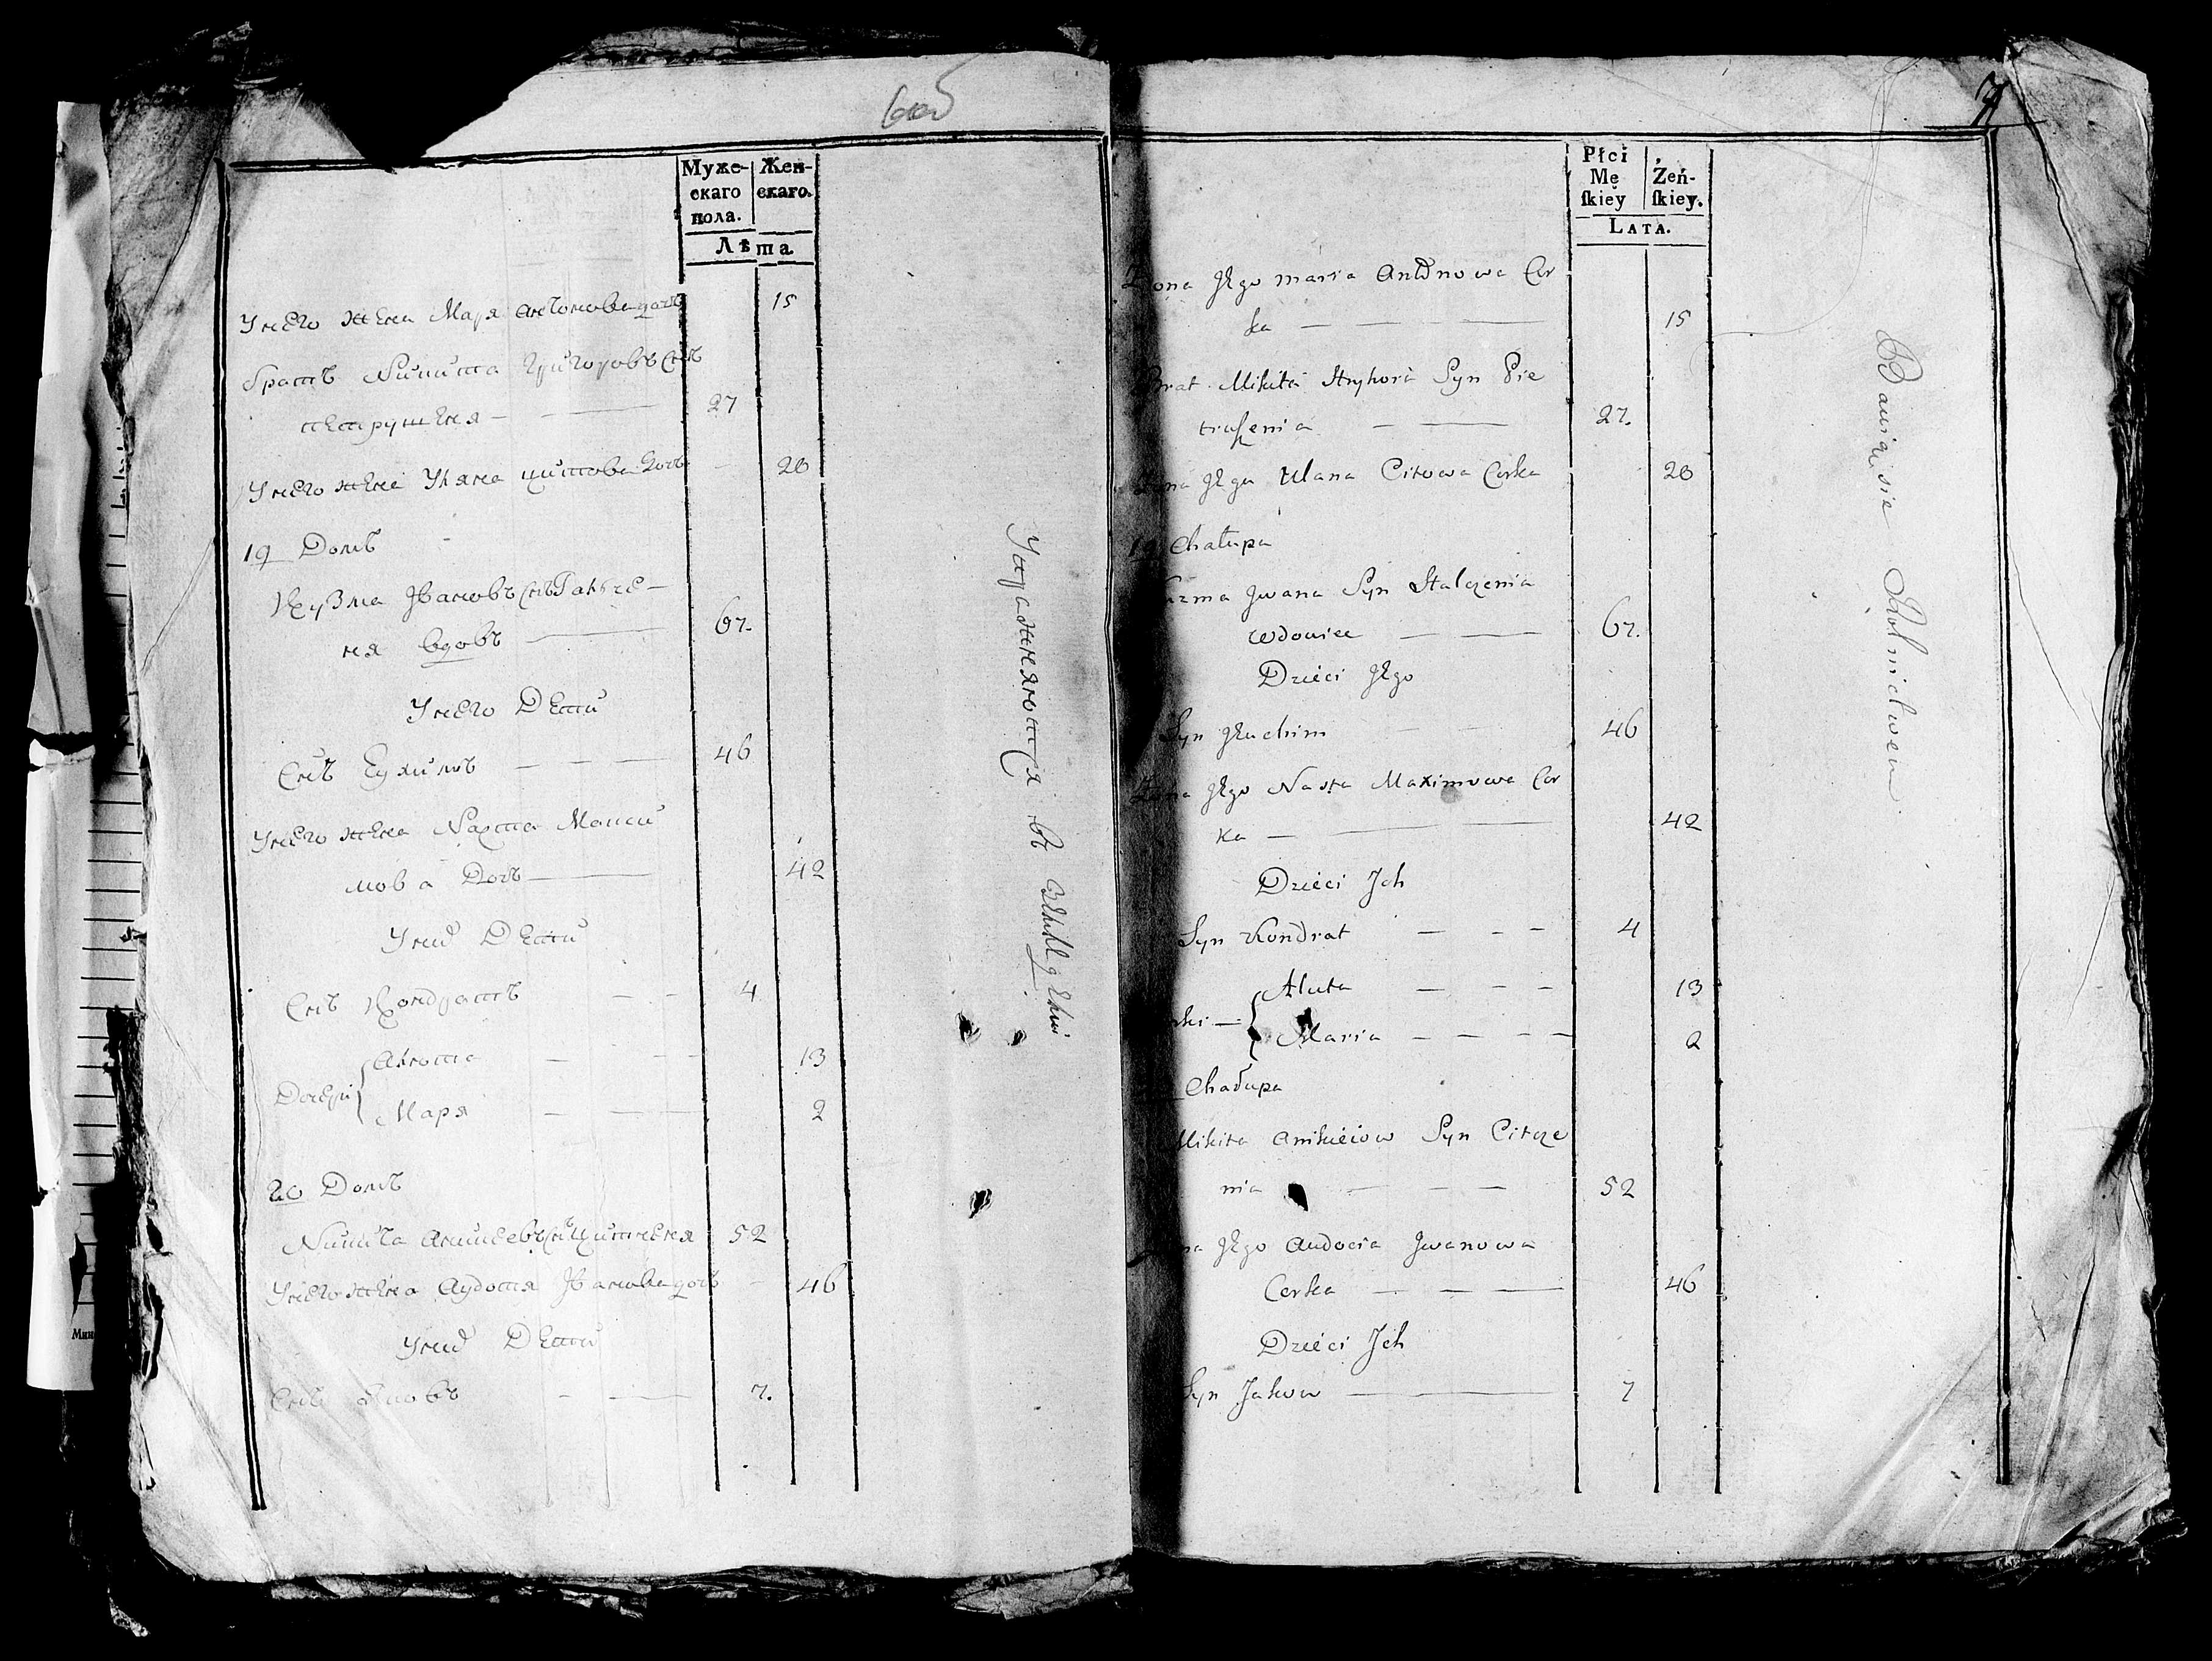 6 об
Мужескаго пола.
Женскаго.
Лѣта
У него жена Маря Антонова дочъ 15
братъ Никита Григоровъ снъ
петрушеня — — 27
У него жена Уляна цитова дочъ — 28
19 Домъ
Кузма Ивановъ снъ Гальче-
ня вдовъ — 67.
У него Дети
Снъ Еухимъ — — — 46
У него жена Наста Макси
мова Дочъ — 42
У них Дети
Снъ Кондратъ — — 4
Дочери { Алюта — — — 13
Маря — — — 2
20 Домъ
Никита Аникеевъ снъ Цитченя 52
У него жена Аудотя Иванова дочъ — 46
У них Дети
Снъ Яковъ — — 7.
Упражняются въ
7
Płci Męſkiey
Żeńſkiey.
LATA.
Żona Jego maria Antonowa Cor
ka — — — 15
Brat Mikita Hryhora Syn Pie
truſzenia — — 27.
Żona Jego Ulana Citowa Corka 28
19 Chałupa
Kuzma Jwana Syn Halczenia
wdowiec — — 67.
Dzieci Jego
Syn Jeuchim — — 46
Żona Jego Nasta Maximowa Cor
ka — — — 42
Dzieci Jch
Syn Kondrat — — — 4
Corki — { Aluta — — — 13
Maria — — — — 2
Chałupa
Mikita Anikieiow Syn Citcze
nia — — — 52
Żona Jego Audocia Jwanowa
Corka — — — 46
Dzieci Jch
Syn Jakow — 7
Bawią sie Rolnictwem